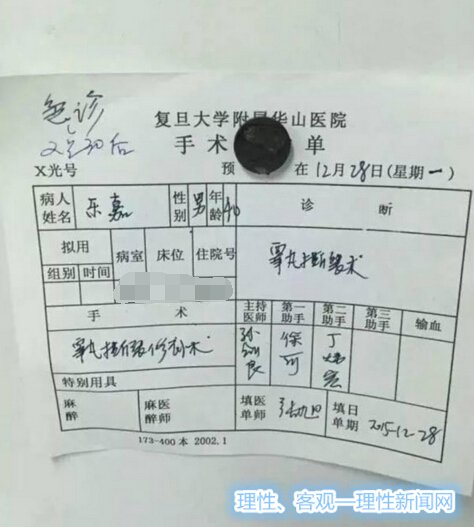 急诊
复旦大学附属华山医院
手术 单
X光号 预 在12月28日(星期一)
病人姓名 乐嘉 性别 男 年龄 40 诊断
拟用 病室 床位 住院号
组别 时间
睾丸
手术 主持医师 第一助手 第二助手 第三助手 输血
睾丸 修补术
特别用具
麻醉 麻医醉师 填医单师 张旭 填日单期 2015-12-28
173-400本 2002.1
理性、客观—理性新闻网